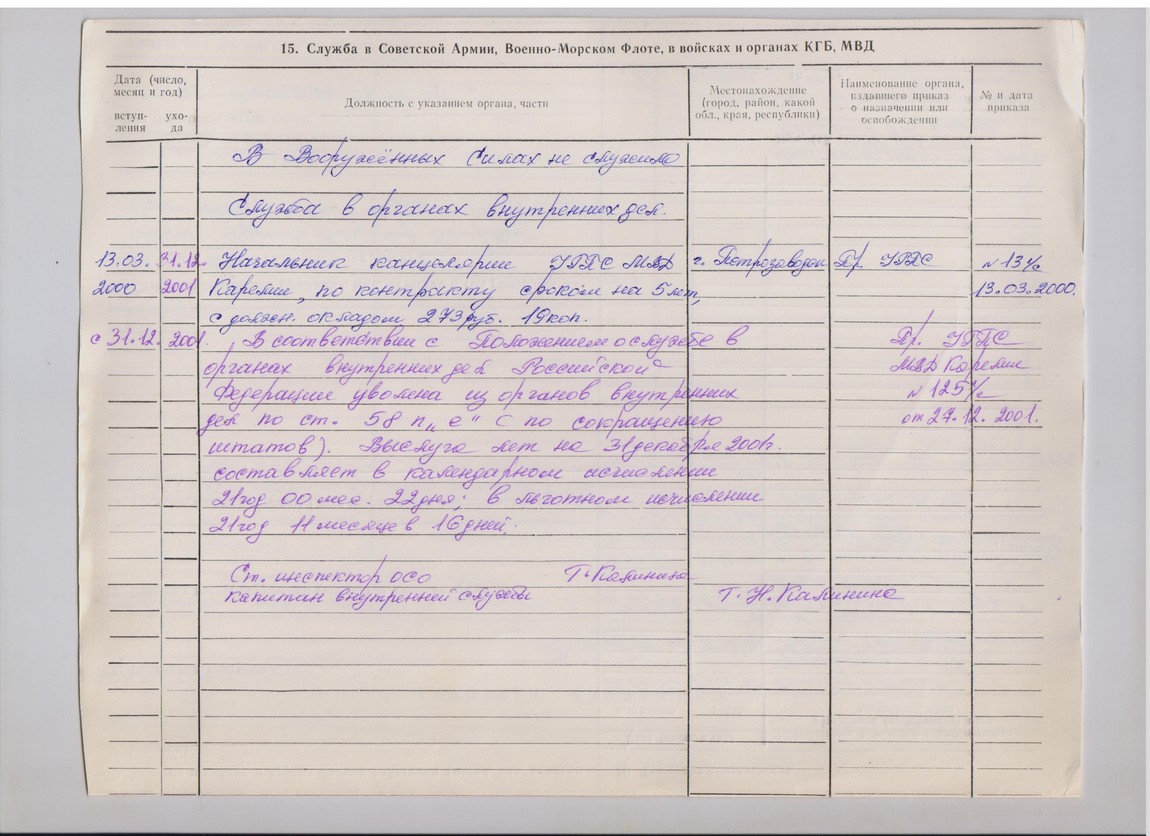 15. Служба в Советской Армии, Военно-Морском Флоте, в войсках и органах КГБ, МВД
Дата (число, месяц и год)
вступ-ления
ухо-да
Должность с указанием органа, части
Местонахождение (город, район, какой обл., края, республики)
Наименование органа, издавшего приказ о назначении или освобождении
№ и дата приказа
В Вооружённых Силах не служила
Служба в органах внутренних дел.
13.03. 31.12. Начальник канцелярии УГПС МВД г. Петрозаводск Пр. УГПС № 13 л/с
2000 2001 Карелии, по контракту сроком на 5 лет, 13.03.2000.
с должн. окладом 273 руб. 19 коп.
с 31.12. 2001. В соответствии с Положением о службе в Пр. УГПС
органах внутренних дел Российской МВД Карелии
Федерации уволена из органов внутренних № 125 л/с
дел по ст. 58 п „е" (по сокращению от 27.12.2001.
штатов). Выслуга лет на 31 декабря 2001г.
составляет в календарном исчислении
21 год 00 мес. 22 дня; в льготном исчислении
21 год 11 месяцев 16 дней.
Ст. инспектор ОСО Т. Калинина
капитан внутренней службы Т. Н. Калинина